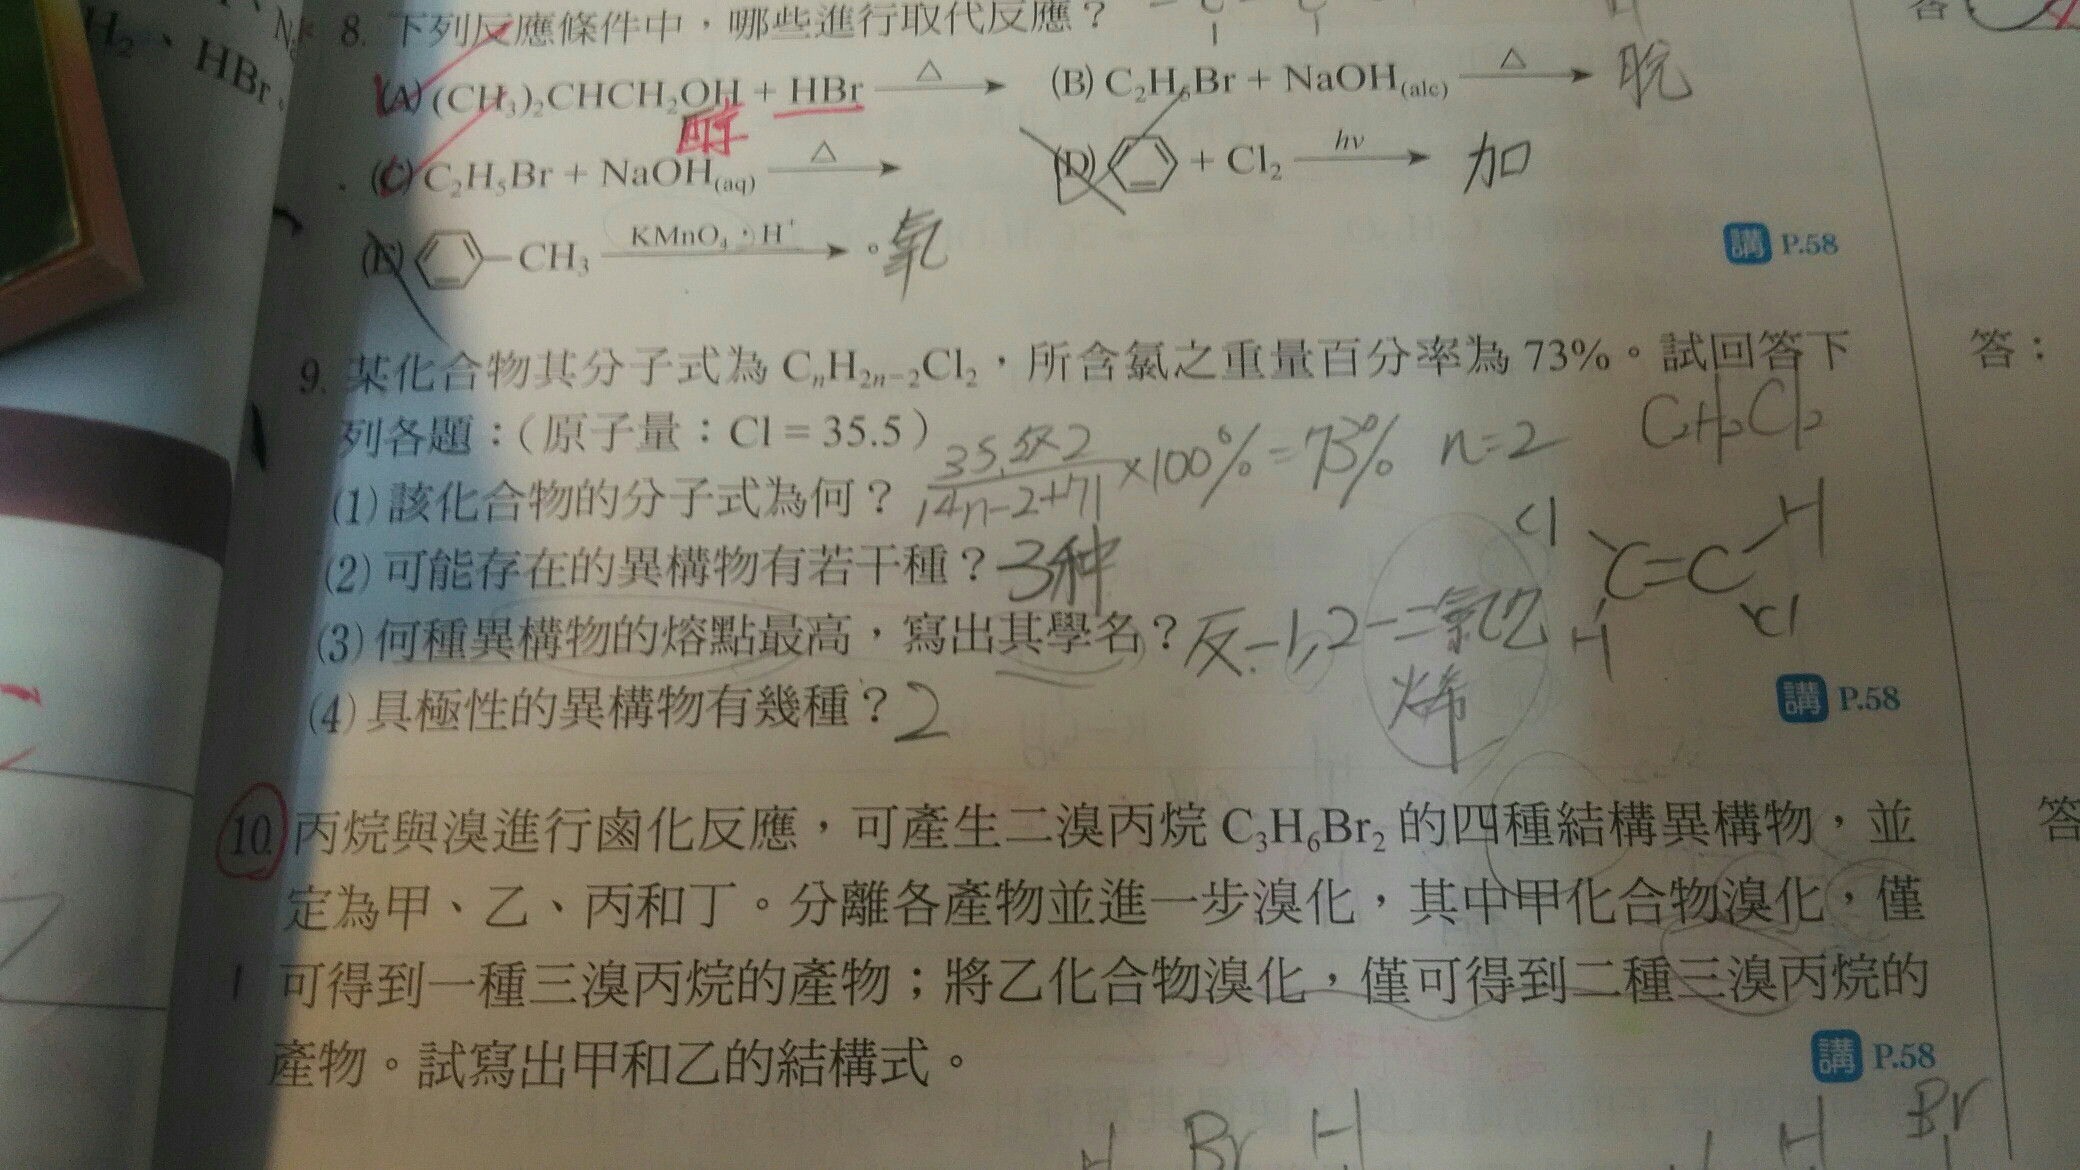 H₂、HBr。
8. 下列反應條件中，哪些進行取代反應？
(A) (CH₃)₂CHCH₂OH + HBr △→ (B) C₂H₅Br + NaOH(alc) △→ 脫
醇
(C) C₂H₅Br + NaOH(aq) △→ (D) + Cl₂ hν→ 加
(E) －CH₃ KMnO₄，H⁺→ 。氧
講 P.58
9. 某化合物其分子式為 CₙH₂ₙ₋₂Cl₂，所含氯之重量百分率為 73%。試回答下
列各題：(原子量：Cl = 35.5)
35.5×2/14n-2+71 ×100% = 73% n=2 C₂H₂Cl₂
(1) 該化合物的分子式為何？
(2) 可能存在的異構物有若干種？ 3种
(3) 何種異構物的熔點最高，寫出其學名？ 反-1,2-二氯乙
烯
Cl H
C=C
H Cl
(4) 具極性的異構物有幾種？ 2
講 P.58
10. 丙烷與溴進行鹵化反應，可產生二溴丙烷 C₃H₆Br₂ 的四種結構異構物，並
定為甲、乙、丙和丁。分離各產物並進一步溴化，其中甲化合物溴化，僅
可得到一種三溴丙烷的產物；將乙化合物溴化，僅可得到二種三溴丙烷的
產物。試寫出甲和乙的結構式。
講 P.58
H Br H H Br
答：
答